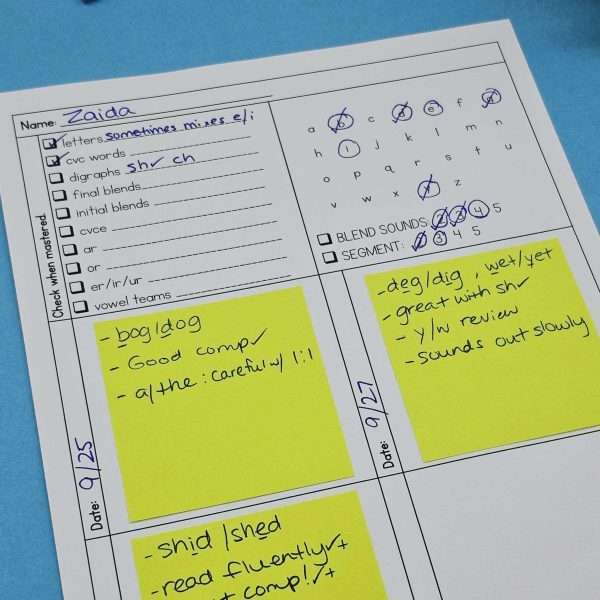 Name: Zaida
Check when mastered.
letters sometimes mixes e/i
cvc words
digraphs sh✓ ch
final blends
initial blends
cvce
ar
or
er/ir/ur
vowel teams
a b c d e f g
h i j k l m n
o p q r s t u
v w x y z
BLEND SOUNDS 2 3 4 5
SEGMENT: 2 3 4 5
Date: 9/25
- bog/dog
- Good comp✓
- a/the : careful w/ 1:1
Date: 9/27
- deg/dig , wet/yet
- great with sh✓
- y/w review
- sounds out slowly
- shid /shed
- read fluently✓+
comp!✓+